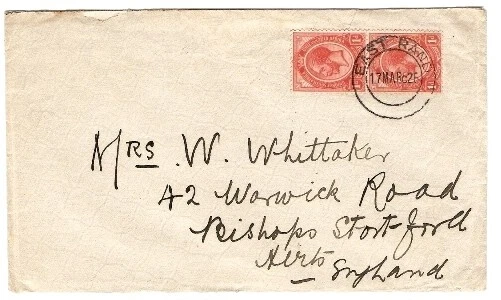 EAST RAND
17 MAR 26
Mrs. W. Whittaker
42 Warwick Road
Bishops Stort-ford
Herts
England